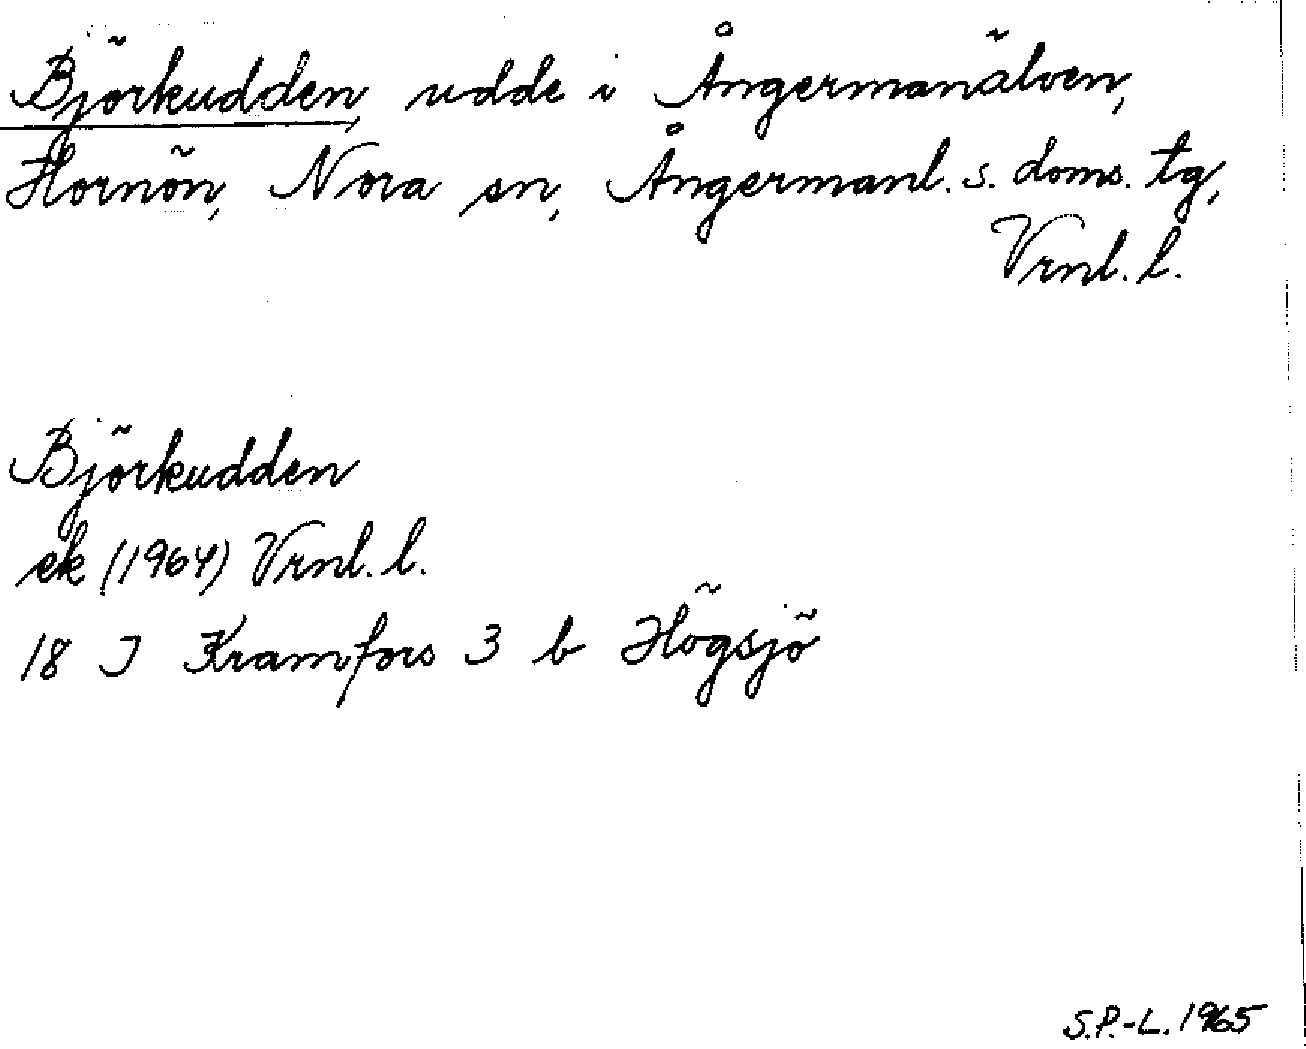 Björkudden, udde i Ångermanälven,
Hornön, Nora sn, Ångermanl. s. doms. tg,
Vrnl. l.
Björkudden
ek (1964) Vrnl. l.
18 I Kramfors 3 b Högsjö
S.P.-L. 1965